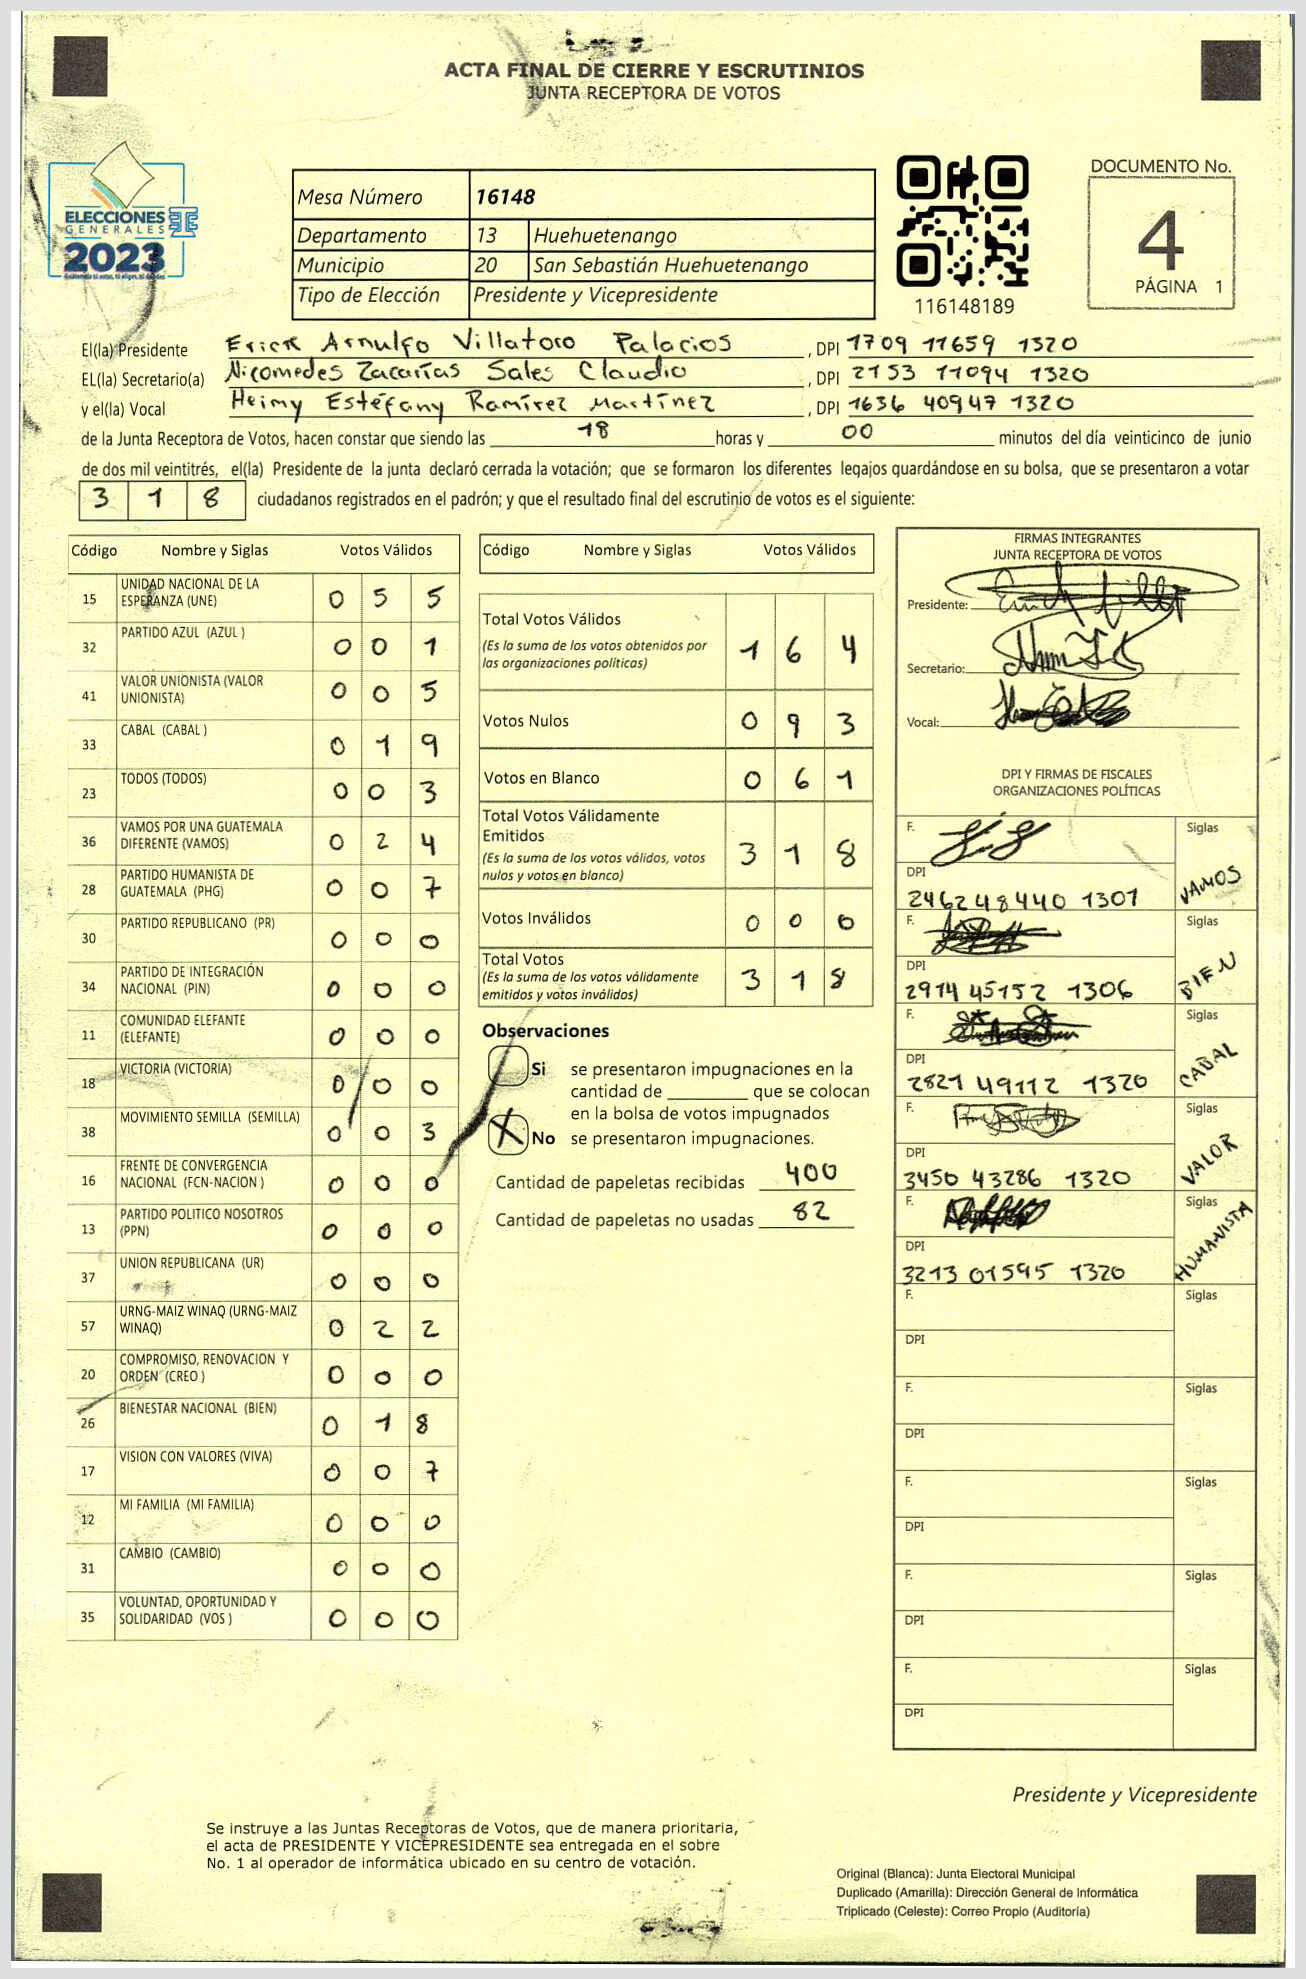 ACTA FINAL DE CIERRE Y ESCRUTINIOS
JUNTA RECEPTORA DE VOTOS
ELECCIONES
GENERALES
2023
Mesa Número 16148
Departamento 13 Huehuetenango
Municipio 20 San Sebastián Huehuetenango
Tipo de Elección Presidente y Vicepresidente
116148189
DOCUMENTO No.
4
PÁGINA 1
El(la) Presidente Erick Arnulfo Villatoro Palacios, DPI 1709 11659 1320
EL(la) Secretario(a) Nicomedes Zacarías Sales Claudio, DPI 2153 11094 1320
y el(la) Vocal Heimy Estéfany Ramírez Martínez, DPI 1636 40947 1320
de la Junta Receptora de Votos, hacen constar que siendo las 18 horas y 00 minutos del día veinticinco de junio
de dos mil veintitrés, el(la) Presidente de la junta declaró cerrada la votación; que se formaron los diferentes legajos guardándose en su bolsa, que se presentaron a votar
3 1 8 ciudadanos registrados en el padrón; y que el resultado final del escrutinio de votos es el siguiente:
Código Nombre y Siglas Votos Válidos
15 UNIDAD NACIONAL DE LA
ESPERANZA (UNE) 0 5 5
32 PARTIDO AZUL (AZUL ) 0 0 1
41 VALOR UNIONISTA (VALOR
UNIONISTA) 0 0 5
33 CABAL (CABAL ) 0 1 9
23 TODOS (TODOS) 0 0 3
36 VAMOS POR UNA GUATEMALA
DIFERENTE (VAMOS) 0 2 4
28 PARTIDO HUMANISTA DE
GUATEMALA (PHG) 0 0 7
30 PARTIDO REPUBLICANO (PR) 0 0 0
34 PARTIDO DE INTEGRACIÓN
NACIONAL (PIN) 0 0 0
11 COMUNIDAD ELEFANTE
(ELEFANTE) 0 0 0
18 VICTORIA (VICTORIA) 0 0 0
38 MOVIMIENTO SEMILLA (SEMILLA) 0 0 3
16 FRENTE DE CONVERGENCIA
NACIONAL (FCN-NACION ) 0 0 0
13 PARTIDO POLITICO NOSOTROS
(PPN) 0 0 0
37 UNION REPUBLICANA (UR) 0 0 0
57 URNG-MAIZ WINAQ (URNG-MAIZ
WINAQ) 0 2 2
20 COMPROMISO, RENOVACION Y
ORDEN (CREO ) 0 0 0
26 BIENESTAR NACIONAL (BIEN) 0 1 8
17 VISION CON VALORES (VIVA) 0 0 7
12 MI FAMILIA (MI FAMILIA) 0 0 0
31 CAMBIO (CAMBIO) 0 0 0
35 VOLUNTAD, OPORTUNIDAD Y
SOLIDARIDAD (VOS ) 0 0 0
Código Nombre y Siglas Votos Válidos
Total Votos Válidos
(Es la suma de los votos obtenidos por
las organizaciones políticas) 1 6 4
Votos Nulos 0 9 3
Votos en Blanco 0 6 1
Total Votos Válidamente
Emitidos
(Es la suma de los votos válidos, votos
nulos y votos en blanco) 3 1 8
Votos Inválidos 0 0 0
Total Votos
(Es la suma de los votos válidamente
emitidos y votos inválidos) 3 1 8
Observaciones
Si se presentaron impugnaciones en la
cantidad de ________ que se colocan
en la bolsa de votos impugnados
X No se presentaron impugnaciones.
Cantidad de papeletas recibidas 400
Cantidad de papeletas no usadas 82
FIRMAS INTEGRANTES
JUNTA RECEPTORA DE VOTOS
Presidente:
Secretario:
Vocal:
DPI Y FIRMAS DE FISCALES
ORGANIZACIONES POLÍTICAS
F. Siglas
DPI VAMOS
2462 48440 1301
F. Siglas
DPI BIEN
2914 45152 1306
F. Siglas
DPI CABAL
2821 49112 1320
F. Siglas
DPI VALOR
3450 43286 1320
F. Siglas
DPI HUMANISTA
3213 01595 1320
F. Siglas
DPI
F. Siglas
DPI
F. Siglas
DPI
F. Siglas
DPI
F. Siglas
DPI
Presidente y Vicepresidente
Se instruye a las Juntas Receptoras de Votos, que de manera prioritaria,
el acta de PRESIDENTE Y VICEPRESIDENTE sea entregada en el sobre
No. 1 al operador de informática ubicado en su centro de votación.
Original (Blanca): Junta Electoral Municipal
Duplicado (Amarilla): Dirección General de Informática
Triplicado (Celeste): Correo Propio (Auditoría)